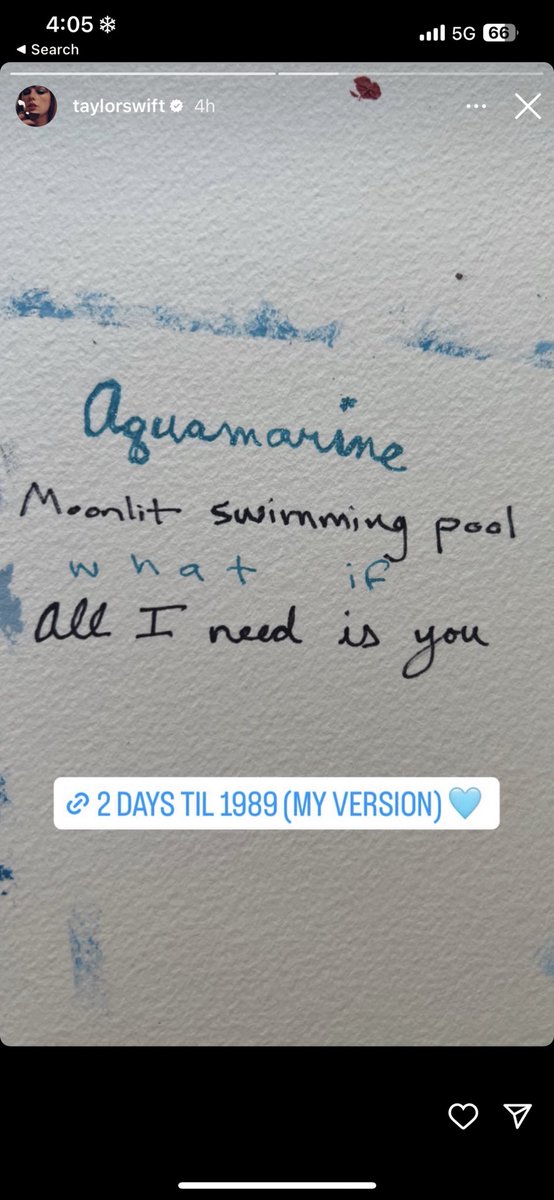 4:05
5G 66
Search
taylorswift 4h
Aquamarine
Moonlit swimming pool
what if
All I need is you
2 DAYS TIL 1989 (MY VERSION)